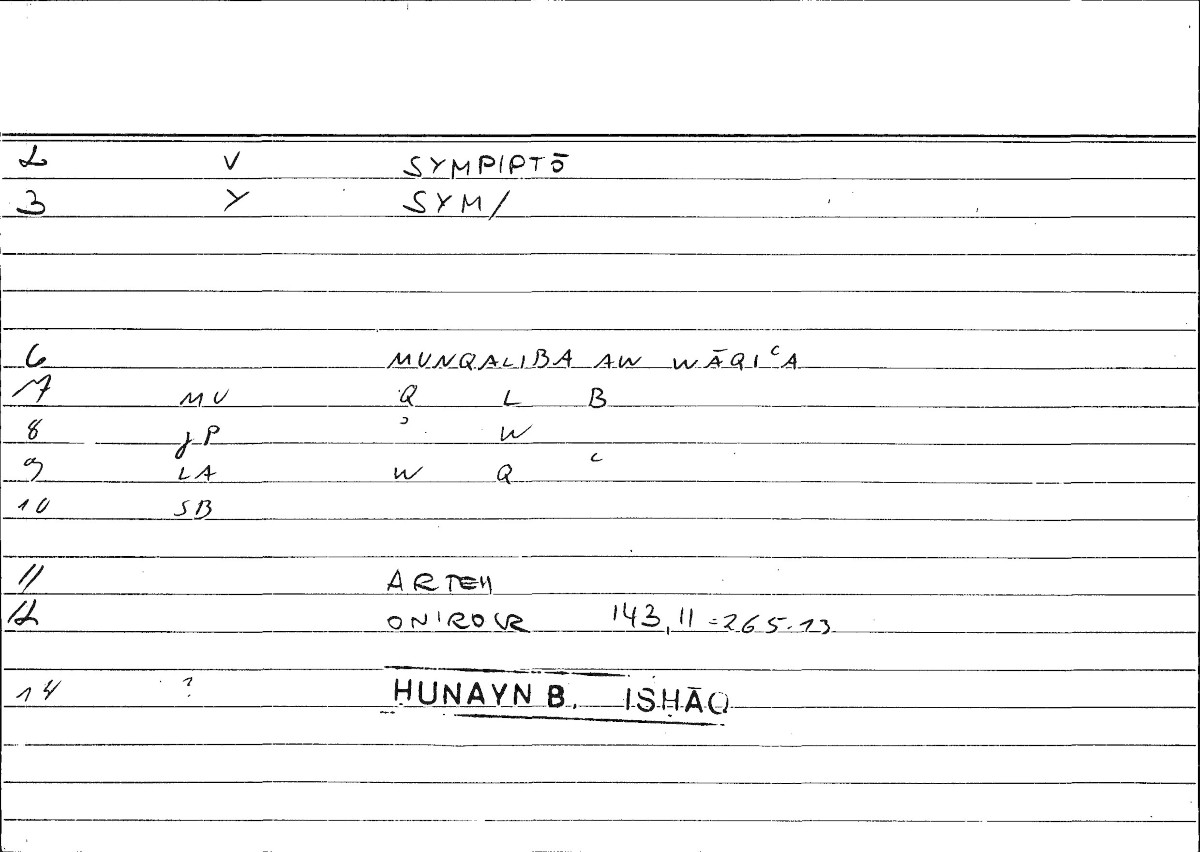 2 V SYMPIPTŌ
3 Y SYM/
6 MUNQALIBA AW WĀQIᶜA
7 MU Q L B
8 JP ʾ W
9 LA W Q ᶜ
10 SB
11 ARTEM
12 ONIROCR 143,11=265.13
14 ? ḤUNAYN B. ISḤĀQ